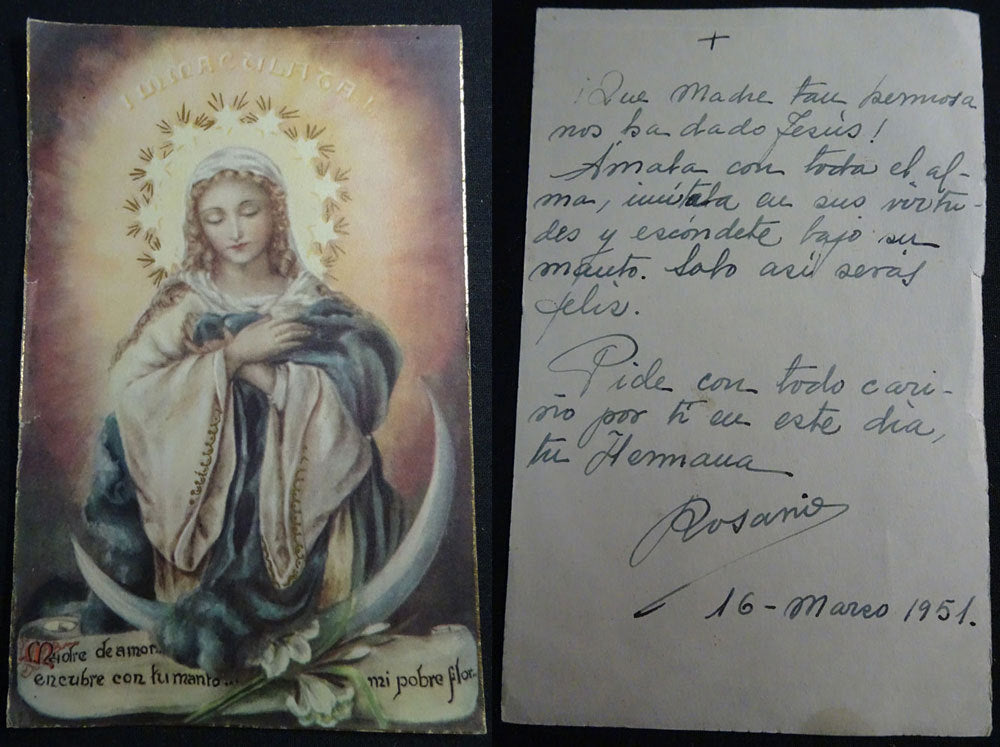 IMMACULATA
Madre de amor..
encubre con tu manto... mi pobre flor..
+
¡Que Madre tan hermosa
nos ha dado Jesús!
Ámala con toda el al-
ma, imítala en sus virtu-
des y escóndete bajo su
manto. Solo así serás
feliz.
Pide con todo cari-
ño por ti en este día,
tu Hermana
Rosario
16-Marzo 1951.